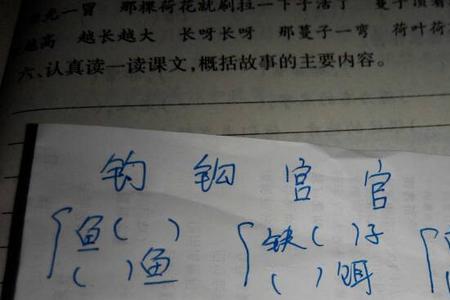 一冒 那棵荷花就刷拉一下子活了 蔓子顶着
越高 越长越大 长呀长呀 那蔓子一弯 荷叶荷
六、认真读一读课文,概括故事的主要内容。
钓 钩 宫 官
鱼( ) 缺( )子
( )鱼 ( )饵